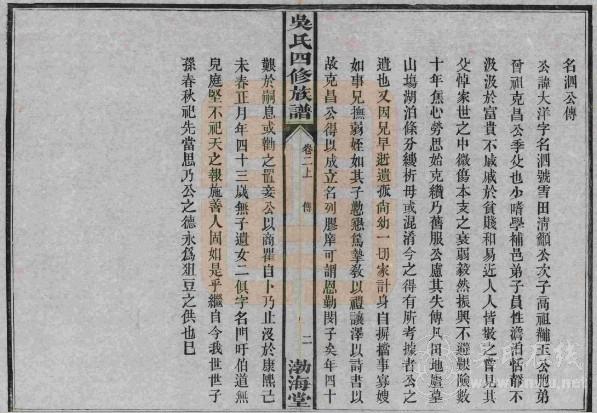 名泗公傳
公諱大洋字名泗號雪田清顥公次子高祖補玉公胞弟
晉祖克昌公季父也少嗜學補邑弟子員性澹泊恬靜不
汲汲於富貴不戚戚於貧賤和易近人人皆敬之嘗見其
父悼家世之中微傷本支之衰弱毅然振興不避艱險數
十年焦心勞思始克纘乃舊服公慮其失傳凡田地廬墓
山塲湖泊條分縷析毋或混淆今之得有所考據者公之
遺也又因兄早逝遺孤尚幼一切家計身自摒擋事寡嫂
如事兄撫弱姪如其子懃懇篤摯教以禮讓澤以詩書以
故克昌公得以成立名列膠庠可謂恩勤閔子矣年四十
艱於嗣息或勸之置妾公以商瞿自卜乃止沒於康熙己
未春正月年四十三歲無子遺女二俱字名門吁伯道無
兒庭堅不祀天之報施善人固如是乎繼自今我世世子
孫春秋祀先當思乃公之德永爲俎豆之供也已
吳氏四修族譜
卷二上
傳
二
渤海堂